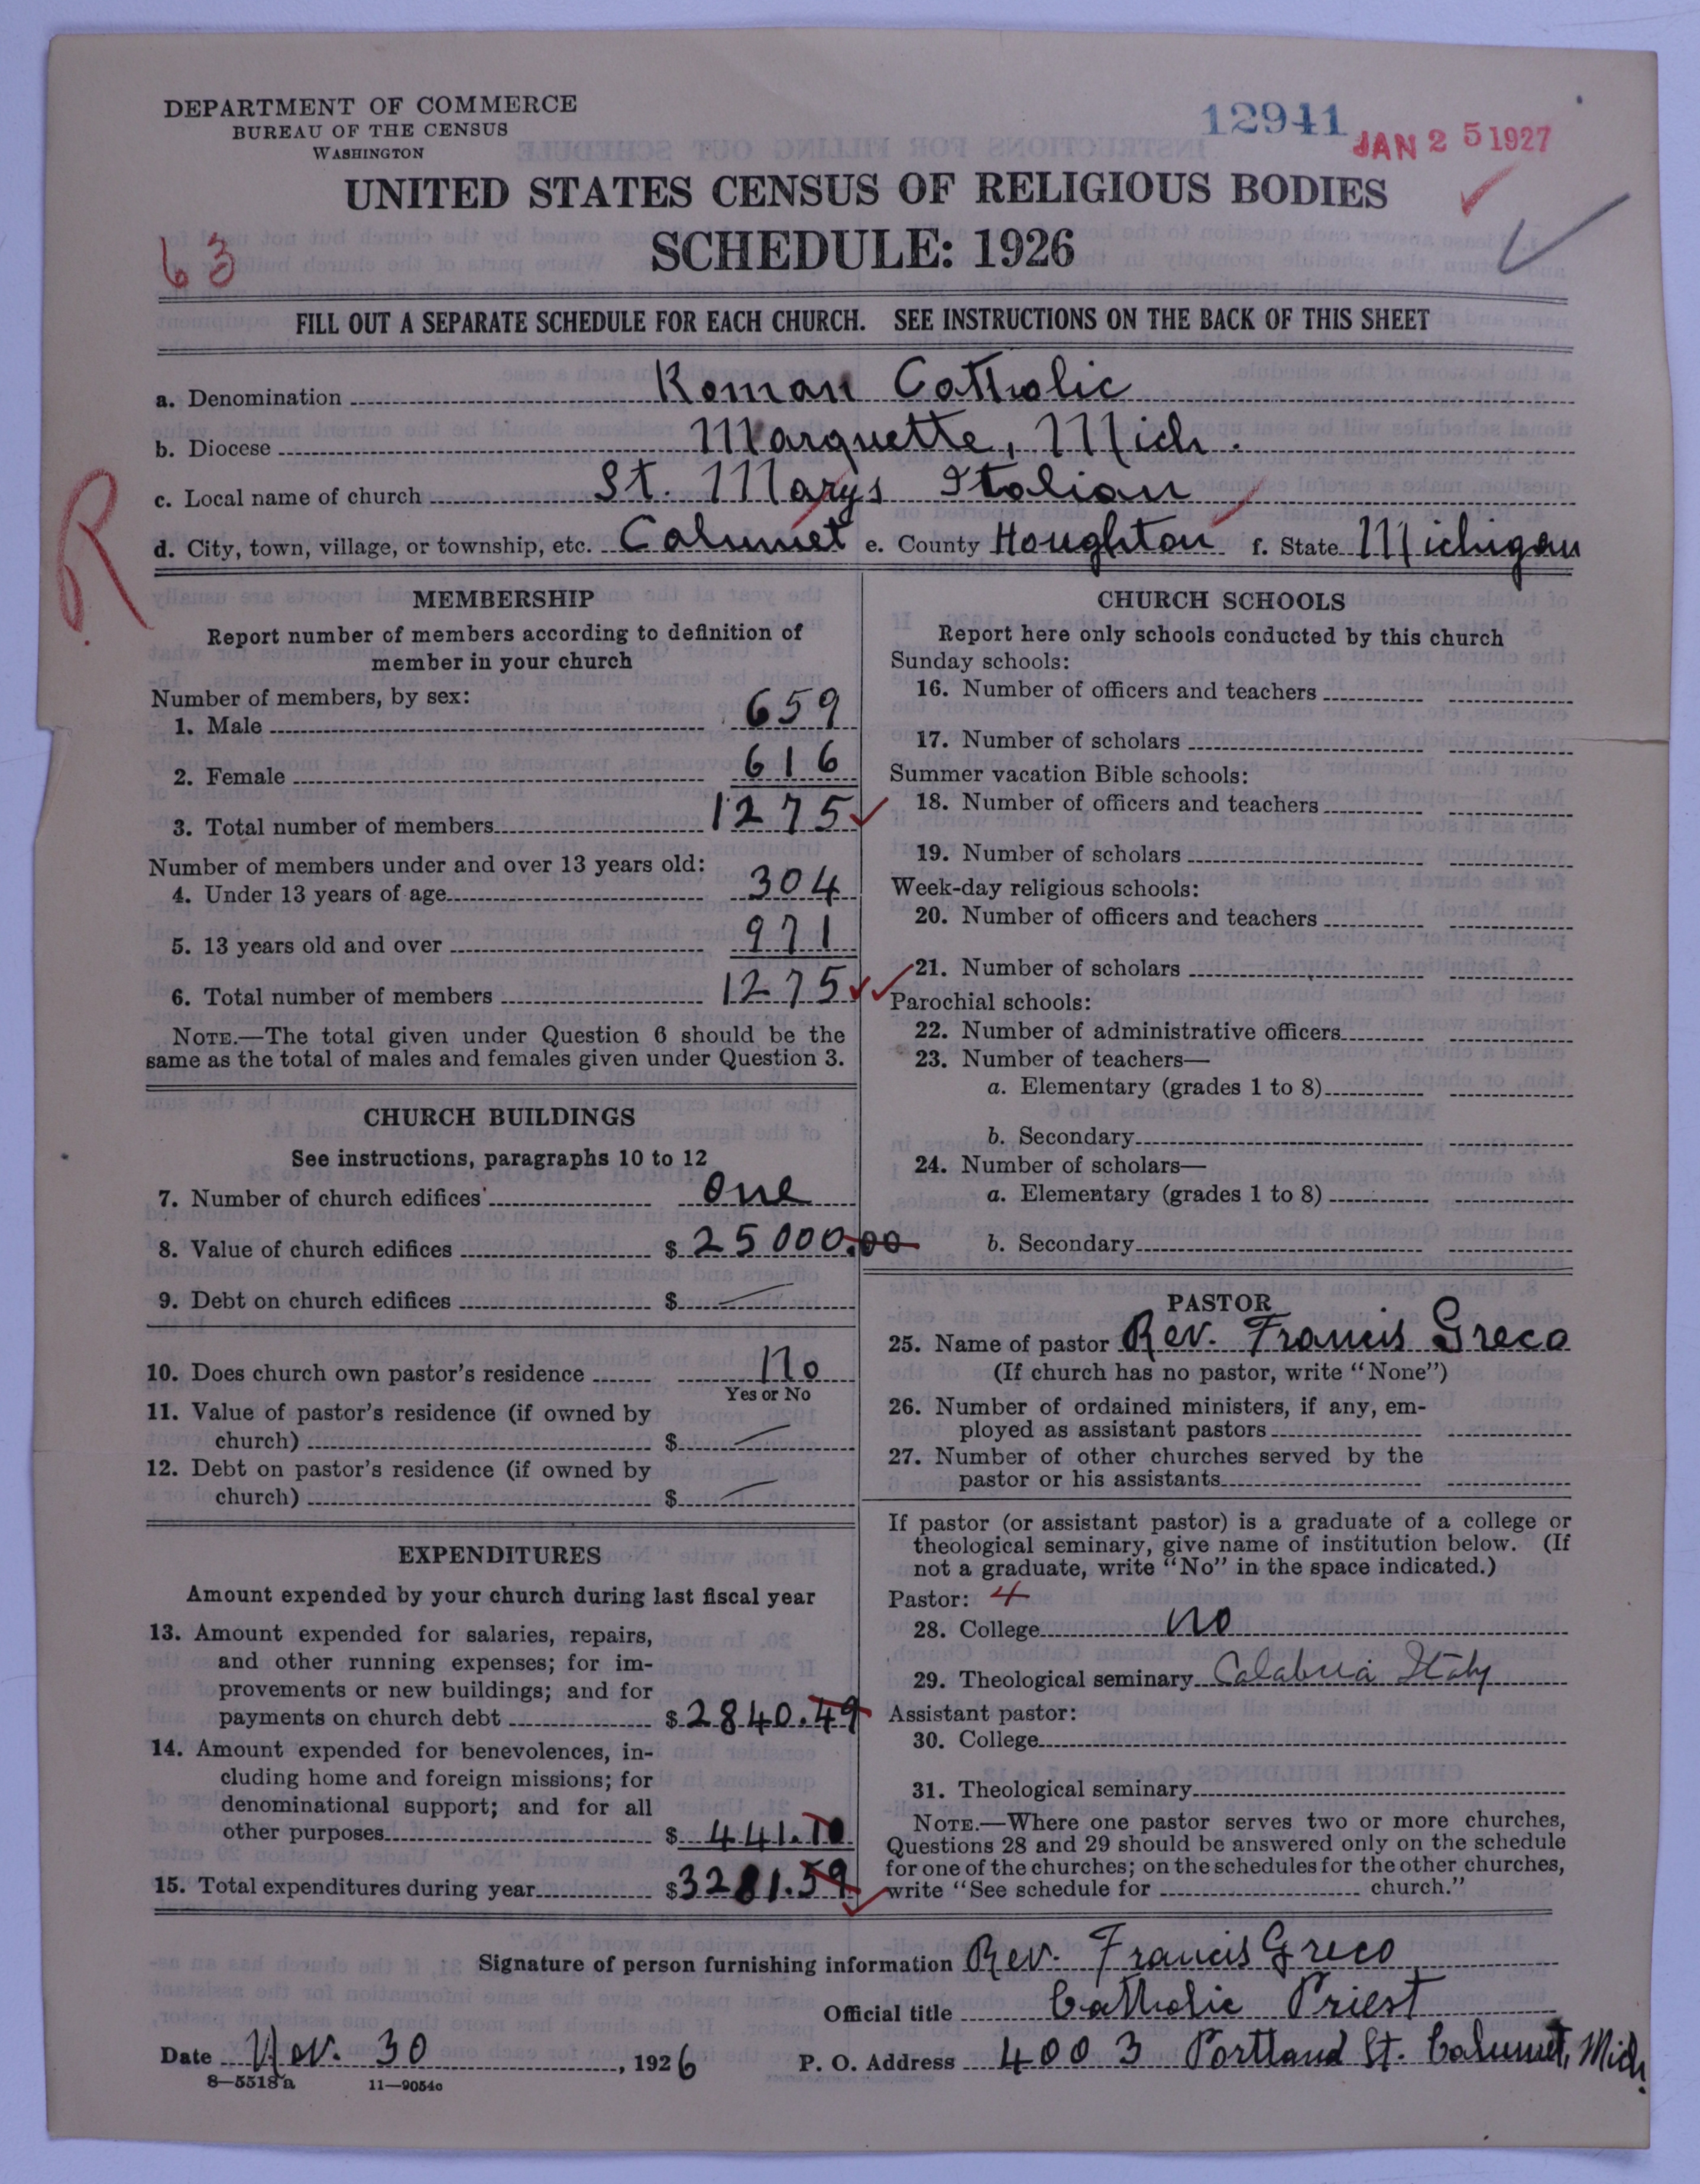 DEPARTMENT OF COMMERCE
BUREAU OF THE CENSUS
WASHINGTON
12941
JAN 25 1927
UNITED STATES CENSUS OF RELIGIOUS BODIES
SCHEDULE: 1926
63
FILL OUT A SEPARATE SCHEDULE FOR EACH CHURCH. SEE INSTRUCTIONS ON THE BACK OF THIS SHEET
a. Denomination Roman Catholic
b. Diocese Marquette, Mich.
c. Local name of church St. Marys Italian
d. City, town, village, or township, etc. Calumet e. County Houghton f. State Michigan
R
MEMBERSHIP
Report number of members according to definition of
member in your church
Number of members, by sex:
1. Male 659
2. Female 616
3. Total number of members 1275
Number of members under and over 13 years old:
4. Under 13 years of age 304
5. 13 years old and over 971
6. Total number of members 1275
NOTE.—The total given under Question 6 should be the
same as the total of males and females given under Question 3.
CHURCH BUILDINGS
See instructions, paragraphs 10 to 12
7. Number of church edifices One
8. Value of church edifices $ 25000.00
9. Debt on church edifices $ —
10. Does church own pastor's residence No
Yes or No
11. Value of pastor's residence (if owned by
church) $ —
12. Debt on pastor's residence (if owned by
church) $ —
EXPENDITURES
Amount expended by your church during last fiscal year
13. Amount expended for salaries, repairs,
and other running expenses; for im-
provements or new buildings; and for
payments on church debt $ 2840.49
14. Amount expended for benevolences, in-
cluding home and foreign missions; for
denominational support; and for all
other purposes $ 441.10
15. Total expenditures during year $ 3281.59
CHURCH SCHOOLS
Report here only schools conducted by this church
Sunday schools:
16. Number of officers and teachers
17. Number of scholars
Summer vacation Bible schools:
18. Number of officers and teachers
19. Number of scholars
Week-day religious schools:
20. Number of officers and teachers
21. Number of scholars
Parochial schools:
22. Number of administrative officers
23. Number of teachers—
a. Elementary (grades 1 to 8)
b. Secondary
24. Number of scholars—
a. Elementary (grades 1 to 8)
b. Secondary
PASTOR
25. Name of pastor Rev. Francis Greco
(If church has no pastor, write "None")
26. Number of ordained ministers, if any, em-
ployed as assistant pastors
27. Number of other churches served by the
pastor or his assistants
If pastor (or assistant pastor) is a graduate of a college or
theological seminary, give name of institution below. (If
not a graduate, write "No" in the space indicated.)
Pastor: 4
28. College no
29. Theological seminary Calabria Italy
Assistant pastor:
30. College
31. Theological seminary
NOTE.—Where one pastor serves two or more churches,
Questions 28 and 29 should be answered only on the schedule
for one of the churches; on the schedules for the other churches,
write "See schedule for church."
Signature of person furnishing information Rev. Francis Greco
Official title Catholic Priest
Date Nov. 30, 1926 P. O. Address 4003 Portland St. Calumet, Mich.
8—5518 a 11—9054c